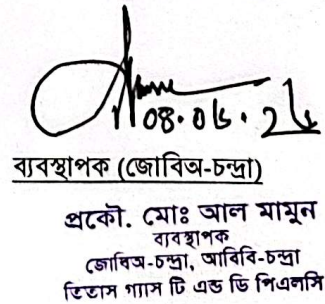 ০৪.০৬.২৬
ব্যবস্থাপক (জোবিঅ-চন্দ্রা)
প্রকৌ. মোঃ আল মামুন
ব্যবস্থাপক
জোবিঅ-চন্দ্রা, আবিবি-চন্দ্রা
তিতাস গ্যাস টি এন্ড ডি পিএলসি